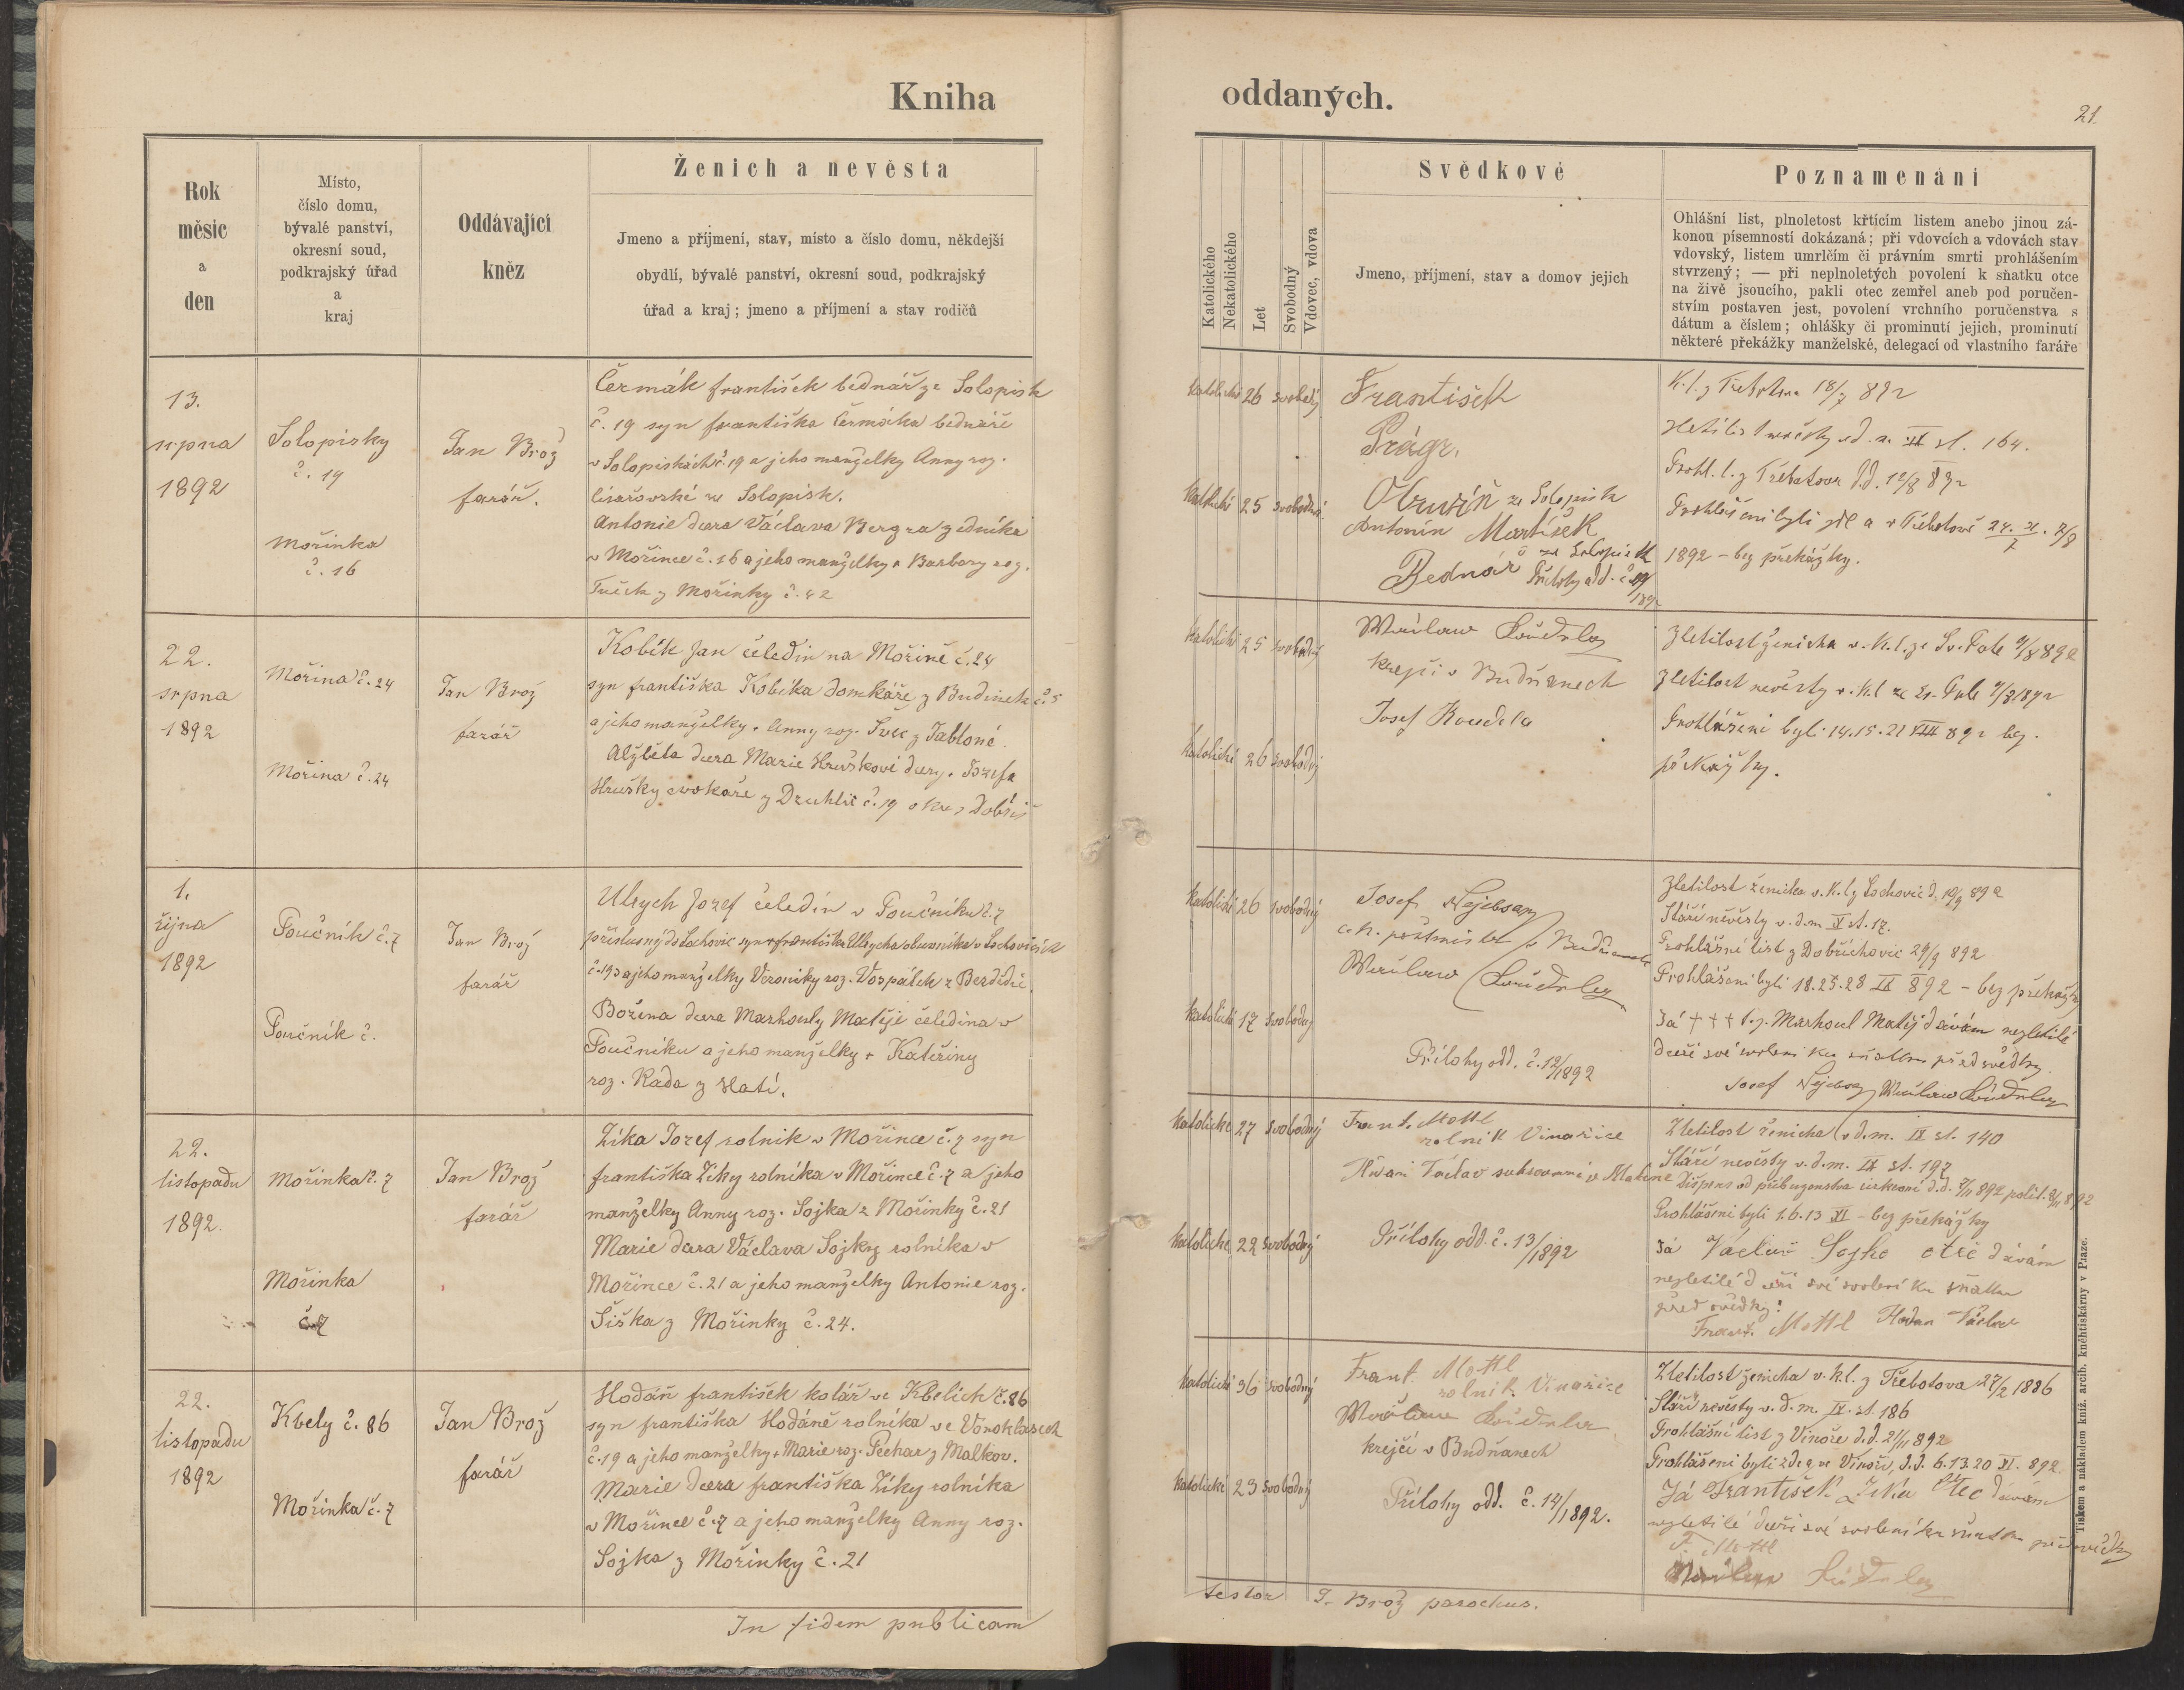 Kniha
Rok
měsíc
a
den
Místo,
číslo domu,
bývalé panství,
okresní soud,
podkrajský úřad
a
kraj
Oddávající
kněz
Ženich a nevěsta
Jmeno a příjmení, stav, místo a číslo domu, někdejší
obydlí, bývalé panství, okresní soud, podkrajský
úřad a kraj; jmeno a příjmení a stav rodičů
13.
srpna
1892
Solopisky
č. 19
Mořinka
č. 16
Jan Brož
farář.
Čermák František bednář ze Solopisk
č. 19 syn Františka Čermáka bednáře
v Solopiskách č. 19 a jeho manželky Anny roz.
Císařovské ze Solopisk.
Antonie dcera Václava Bergra zedníka
v Mořince č. 16 a jeho manželky Barbory roz.
z Mořinky č. 42
22.
srpna
1892
Mořina č. 24
Mořina č. 24
Jan Brož
farář
Kobík Jan čeledín na Mořině č. 24
syn Františka Kobíka domkáře z Budínek č. 5
a jeho manželky Anny roz. Švec z Jabloné.
Alžběta dcera Marie Hruškové dcery Josefa
Hrušky cvokaře z Druhlic č. 19 okres Dobříš
1.
října
1892
Poučník č. 7
Poučník č.
Jan Brož
farář
Ulrych Josef čeledín v Poučníku č. 7
příslušný do Lochovic syn Františka Ulrycha obuvníka v Lochovicích
č. 193 a jeho manželky Veroniky roz. Vospálek z Bezdědic.
Božena dcera Marhouly Matěje čeledína v
Poučníku a jeho manželky + Kateřiny
roz. Rada z Hatí.
22.
listopadu
1892.
Mořinka č. 7
Mořinka
č. 7
Jan Brož
farář
Zíka Josef rolník v Mořince č. 7 syn
Františka Zíky rolníka v Mořince č. 7 a jeho
manželky Anny roz. Sojka z Mořinky č. 21
Marie dcera Václava Sojky rolníka v
Mořince č. 21 a jeho manželky Antonie roz.
Šiška z Mořinky č. 24.
22.
listopadu
1892
Kbely č. 86
Mořinka č. 7
Jan Brož
farář
Hodáň František kolář ve Kbelích č. 86
syn Františka Hodáně rolníka ve Vonoklasech
č. 19 a jeho manželky + Marie roz. Pechar z Malkov.
Marie dcera Františka Zíky rolníka
v Mořince č. 7 a jeho manželky Anny roz.
Sojka z Mořinky č. 21
In fidem publicam
oddaných.
21.
Katolického
Nekatolického
Let
Svobodný
Vdovec, vdova
Svědkové
Jmeno, příjmení, stav a domov jejich
Poznamenání
Ohlášní list, plnoletost křticím listem anebo jinou zá-
konou písemností dokázaná; při vdovcích a vdovách stav
vdovský, listem umrlčím či právním smrti prohlášením
stvrzený; — při neplnoletých povolení k sňatku otce
na živě jsoucího, pakli otec zemřel aneb pod poručen-
stvím postaven jest, povolení vrchního poručenstva s
dátum a číslem; ohlášky či prominutí jejich, prominutí
některé překážky manželské, delegací od vlastního faráře
katolické 26 svobodný
František
katolické 25 svobodná
ze Solopisk
Antonín
Bednář ze Solopisk
Přílohy odd. č.
K. l. z Třebotova 18/7 892
Zletilost nevěsty v d. m. st. 164.
Prohl. l. z Třebotova d.d. 12/8 892
Prohlášeni byli zde a v Třebotově
1892 – bez překážky.
katolické 25 svobodný
katolické 26 svobodný
krejčí v Budňanech
Josef Koudela
Zletilost ženicha v. k. l. ze Sv. Pole
Zletilost nevěsty v. k. l. ze Sv. Pole
Prohlášeni byli 14. 15. 21 VIII 892 bez
překážky.
katolické 26 svobodný
katolické 17 svobodný
Josef
c. k. poštmistr v Budňanech
Přílohy odd. č. 12/1892
Zletilost ženicha v. k. l. z Lochovic d. 19/9 892
Stáří nevěsty v. d. m. V st. 17.
Prohlášní list z Dobřichovic 29/9 892
Prohlášeni byli 18. 25. 28 IX 892 – bez překážky
Já + + + t. j. Marhoul Matěj dávám nezletilé
dceři své svolení ku sňatku před svědky.
Josef
katolické 27 svobodný
katolické 22 svobodný
Frant. Mottl
rolník Vinařice
Přílohy odd. č. 13/1892
Zletilost ženicha v d. m. IV st. 140
Stáří nevěsty v. d. m. IV st. 197
Prohlášeni byli 1. 6. 13 XI – bez překážky
Já Václav Sojka otec dávám
nezletilé dceři své svolení ku sňatku
před svědky:
Frant. Mottl Hodan Václav
katolické 36 svobodný
katolické 23 svobodný
Frant. Mottl
rolník Vinařice
krejčí v Budňanech
Přílohy odd. č. 14/1892.
Zletilost ženicha v. k. l. z Třebotova 27/2 1886
Stáří nevěsty v. d. m. IV. st. 186
Prohlášní list z Vinoře d. d. 21/11 892
Prohlášeni byli zde a ve Vinoři, d. d. 6. 13. 20 XI. 892
Já František Zíka Otec dávám
nezletilé dceři své svolení ku sňatku před svědky
F. Mottl
testor J. Brož parochus.
Tiskem a nákladem kníž. arcib. knihtiskárny v Praze.